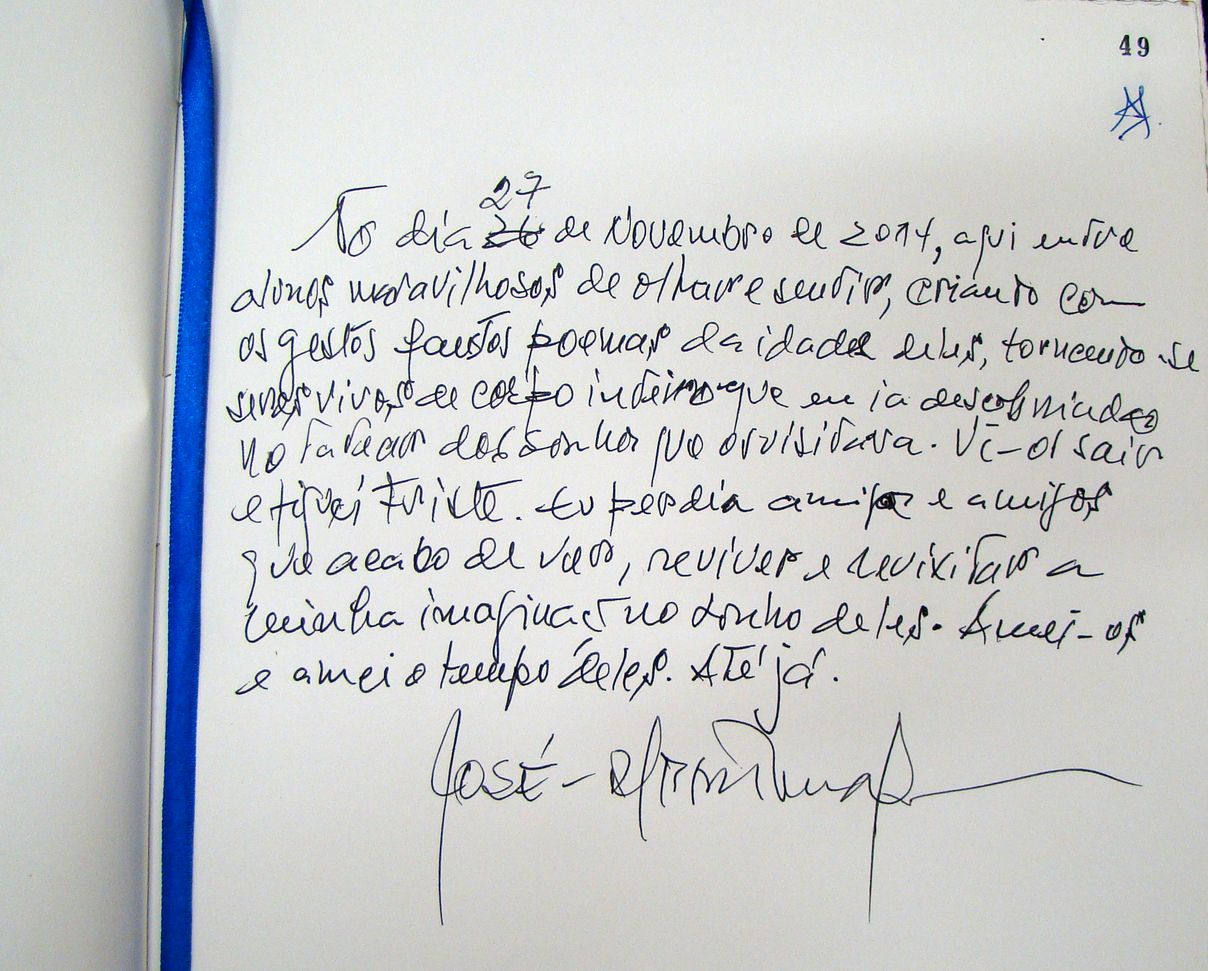 49
No dia 27 de Novembro de 2014, aqui entre
alunos maravilhosos de olhar e sentir, criando com
os gestos poemas da idade deles, tornando-se
seres vivos de corpo inteiro que eu ia
no dos sonhos que . Vi-os sair
e fiquei triste. Eu perdia amigos e amigos
que acabo de ver, reviver e revixitar a
minha no sonho deles. Amei-os
e amei o tempo deles. Até já.
José-